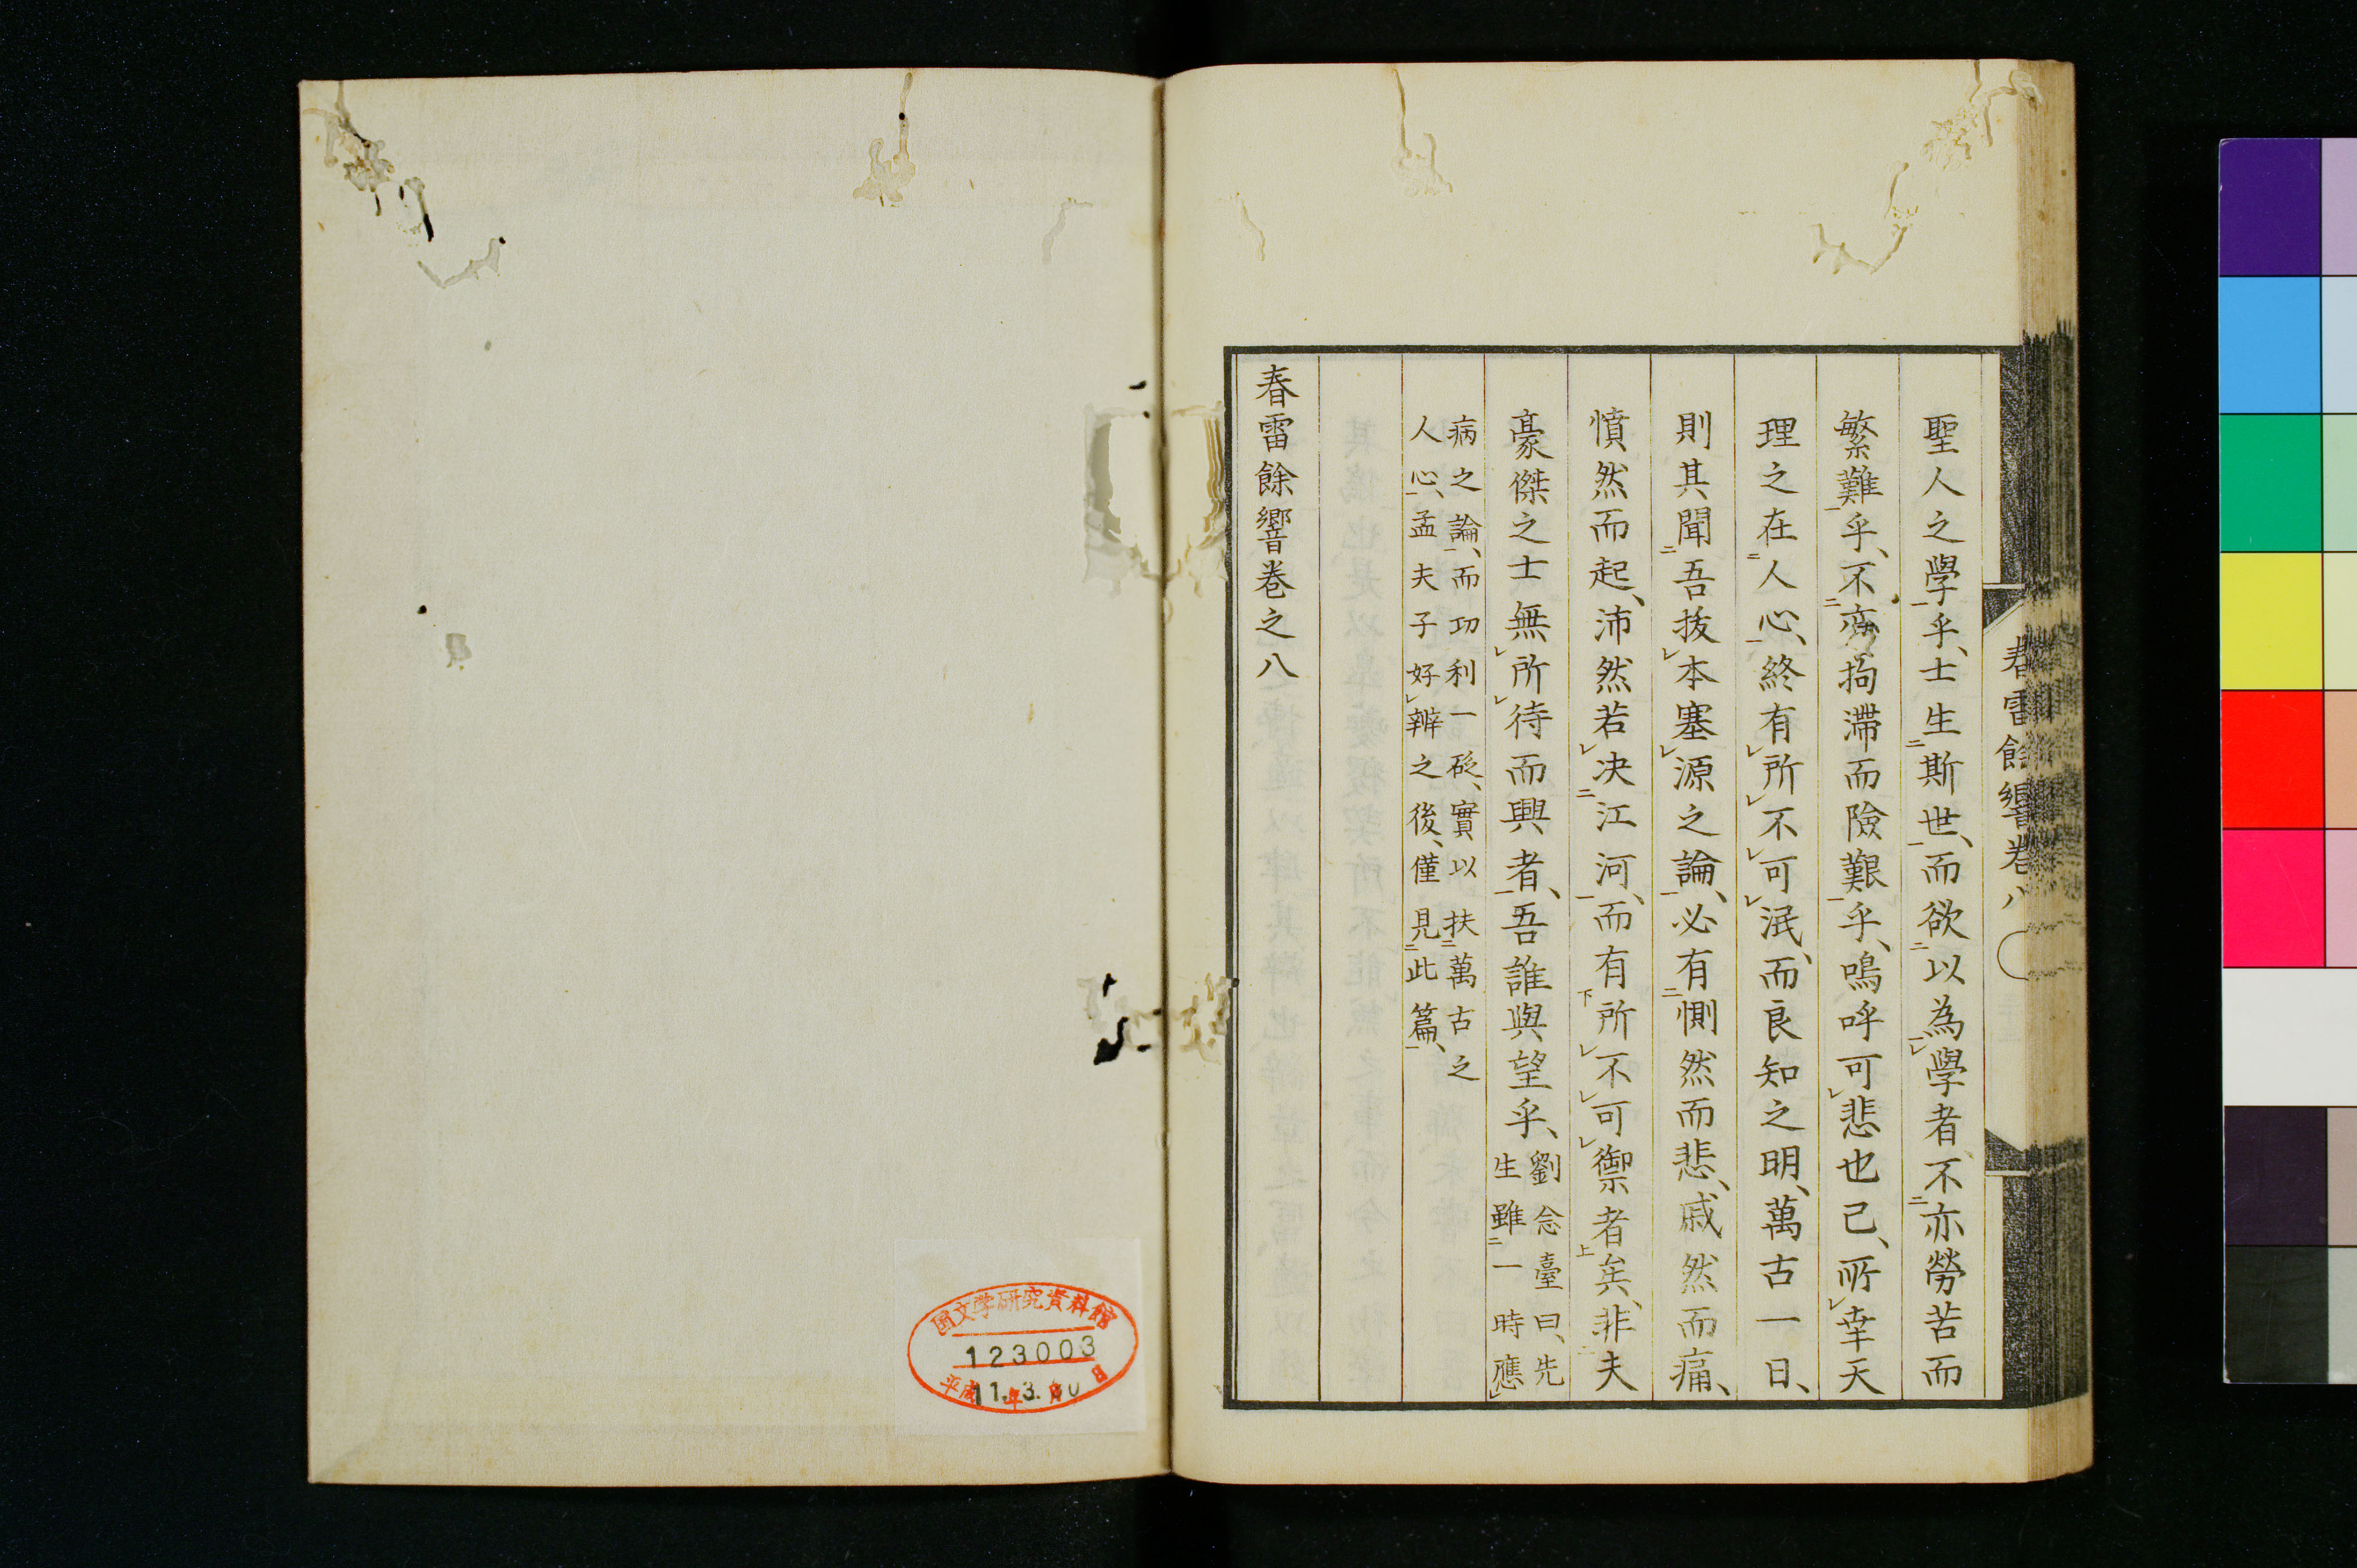 聖人之學乎、士生斯世、而欲以為學者不亦勞苦而
繁難乎、不亦拘滯而險艱乎、嗚呼可悲也已、所幸天
理之在人心、終有所不可泯、而良知之明、萬古一日、
則其聞吾拔本塞源之論、必有惻然而悲、戚然而痛、
憤然而起、沛然若决江河、而有所不可禦者矣、非夫
豪傑之士無所待而興者、吾誰與望乎、
劉念臺曰、先
生雖一時應
病之論、而功利一砭、實以扶萬古之
人心、孟夫子好辨之後、僅見此篇、
春雷餘響卷之八
春雷餘響卷八
国文学研究資料館
123003
平成11年3月30日